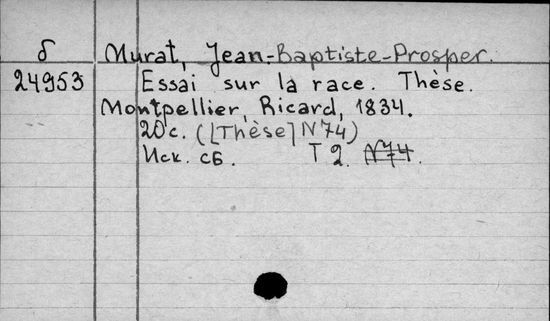 б Murat, Jean-Baptiste-Prosper.
24953 Essai sur la race. Thèse.
Montpellier, Ricard, 1834.
20 c. ([Thèse] N 74)
Иск. сб. T 2. N 74.